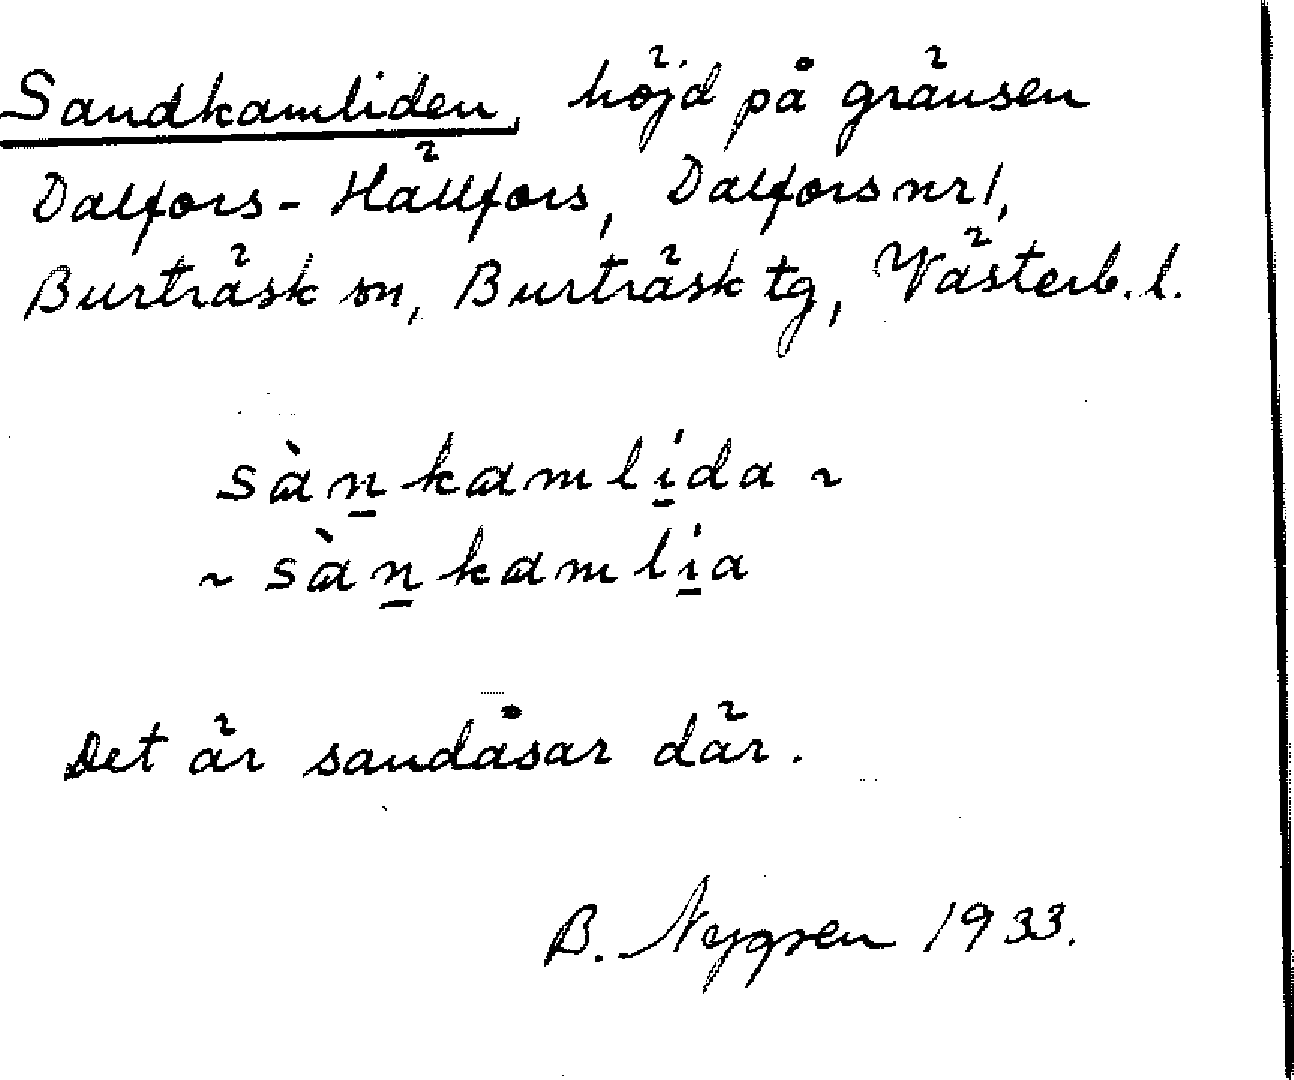 Sandkamliden, höjd på gränsen
Dalfors - Hällfors, Dalfors nr 1,
Burträsk sn, Burträsk tg, Västerb. l.
sàn̲kamlí̲da ~
~ sàn̲kamlí̲a
Det är sandåsar där.
B. Nygren 1933.